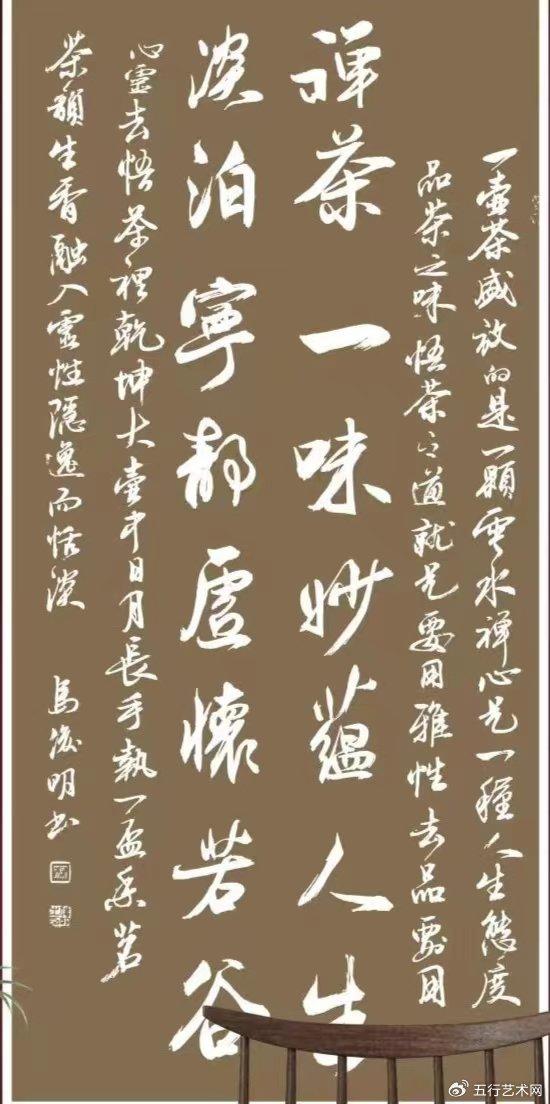 一壺茶盛放的是一顆雲水禪心是一種人生態度
品茶之味悟茶之道就是要用雅性去品要用
禪茶一味妙蘊人生
淡泊寧靜虛懷若谷
心靈去悟茶裡乾坤大壺中日月長手執一盃香茗
茶韻生香融入靈性隱逸而恬淡
馬俊明书
五行艺术网